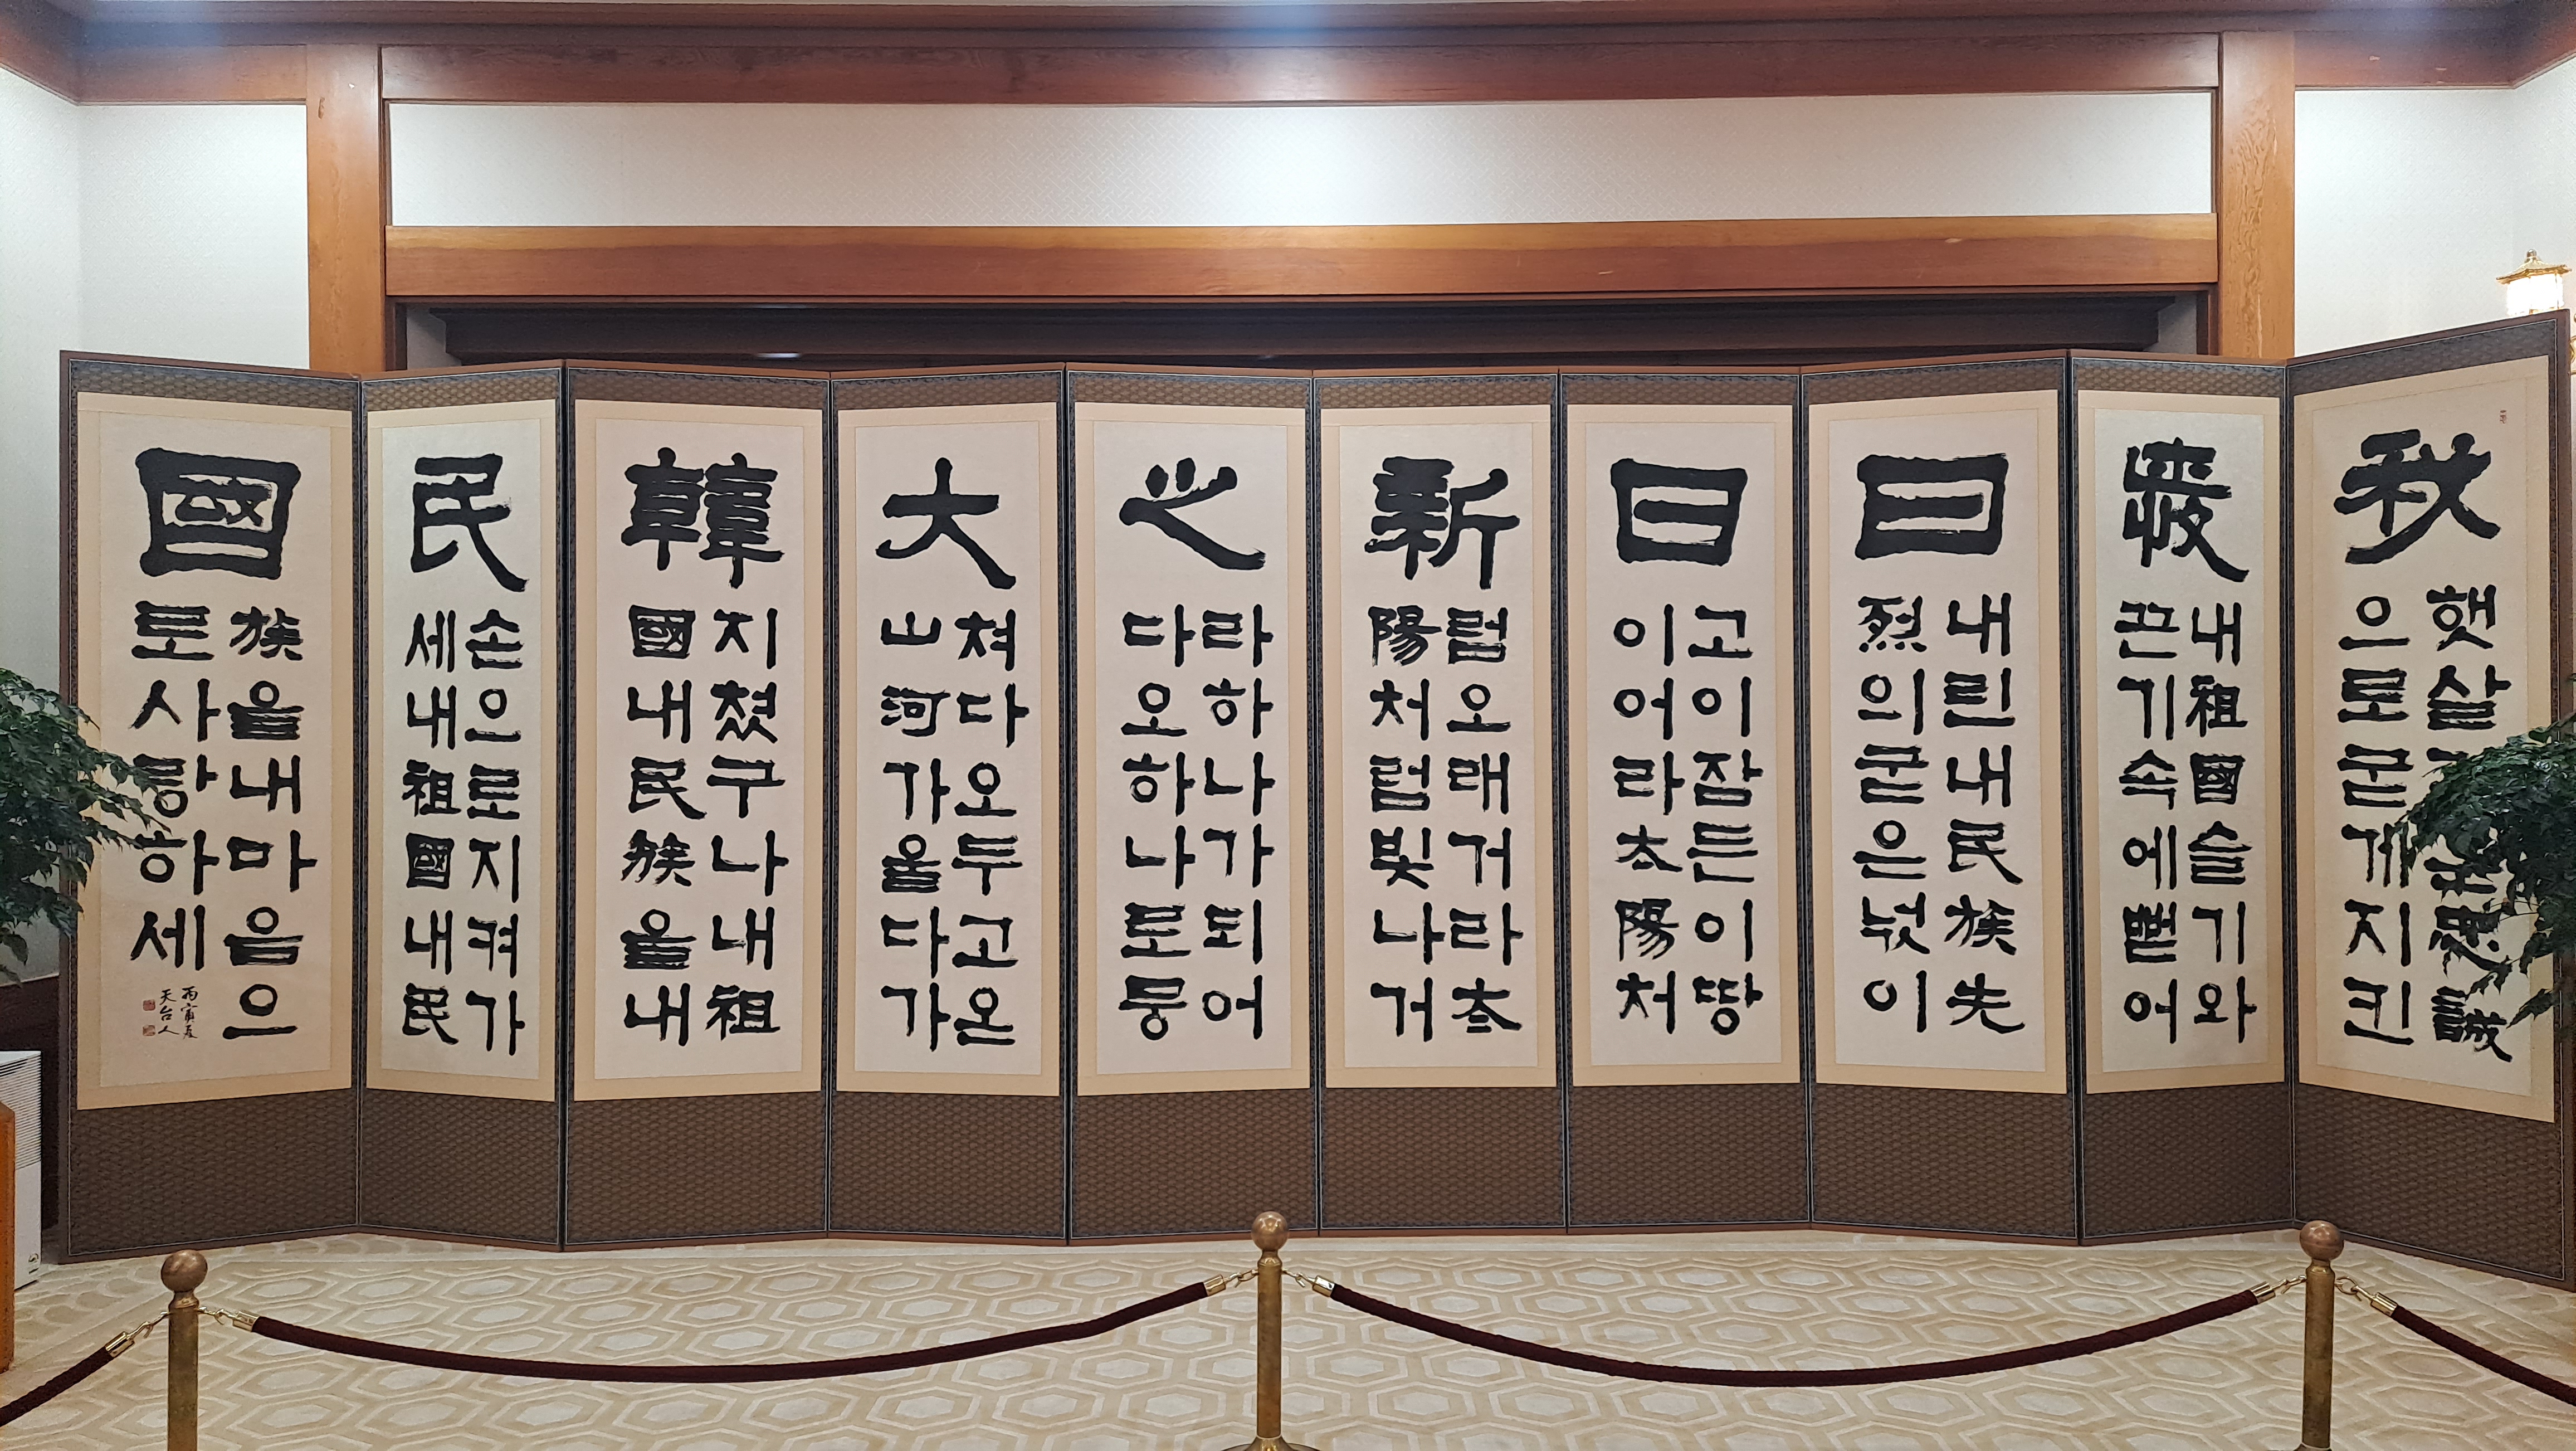 秋
햇살 忠誠
으로굳게지킨
내祖國슬기와
끈기속에뻗어
曰
내린내民族先
烈의굳은넋이
日
고이잠든이땅
이어라太陽처
新
럼오래거라太
陽처럼빛나거
之
라하나가되어
다오하나로뭉
大
쳐다오두고온
山河가올다가
韓
지쳤구나내祖
國내民族을내
民
손으로지켜가
세내祖國내民
國
族을내마음으
로사랑하세
丙寅夏
天台人